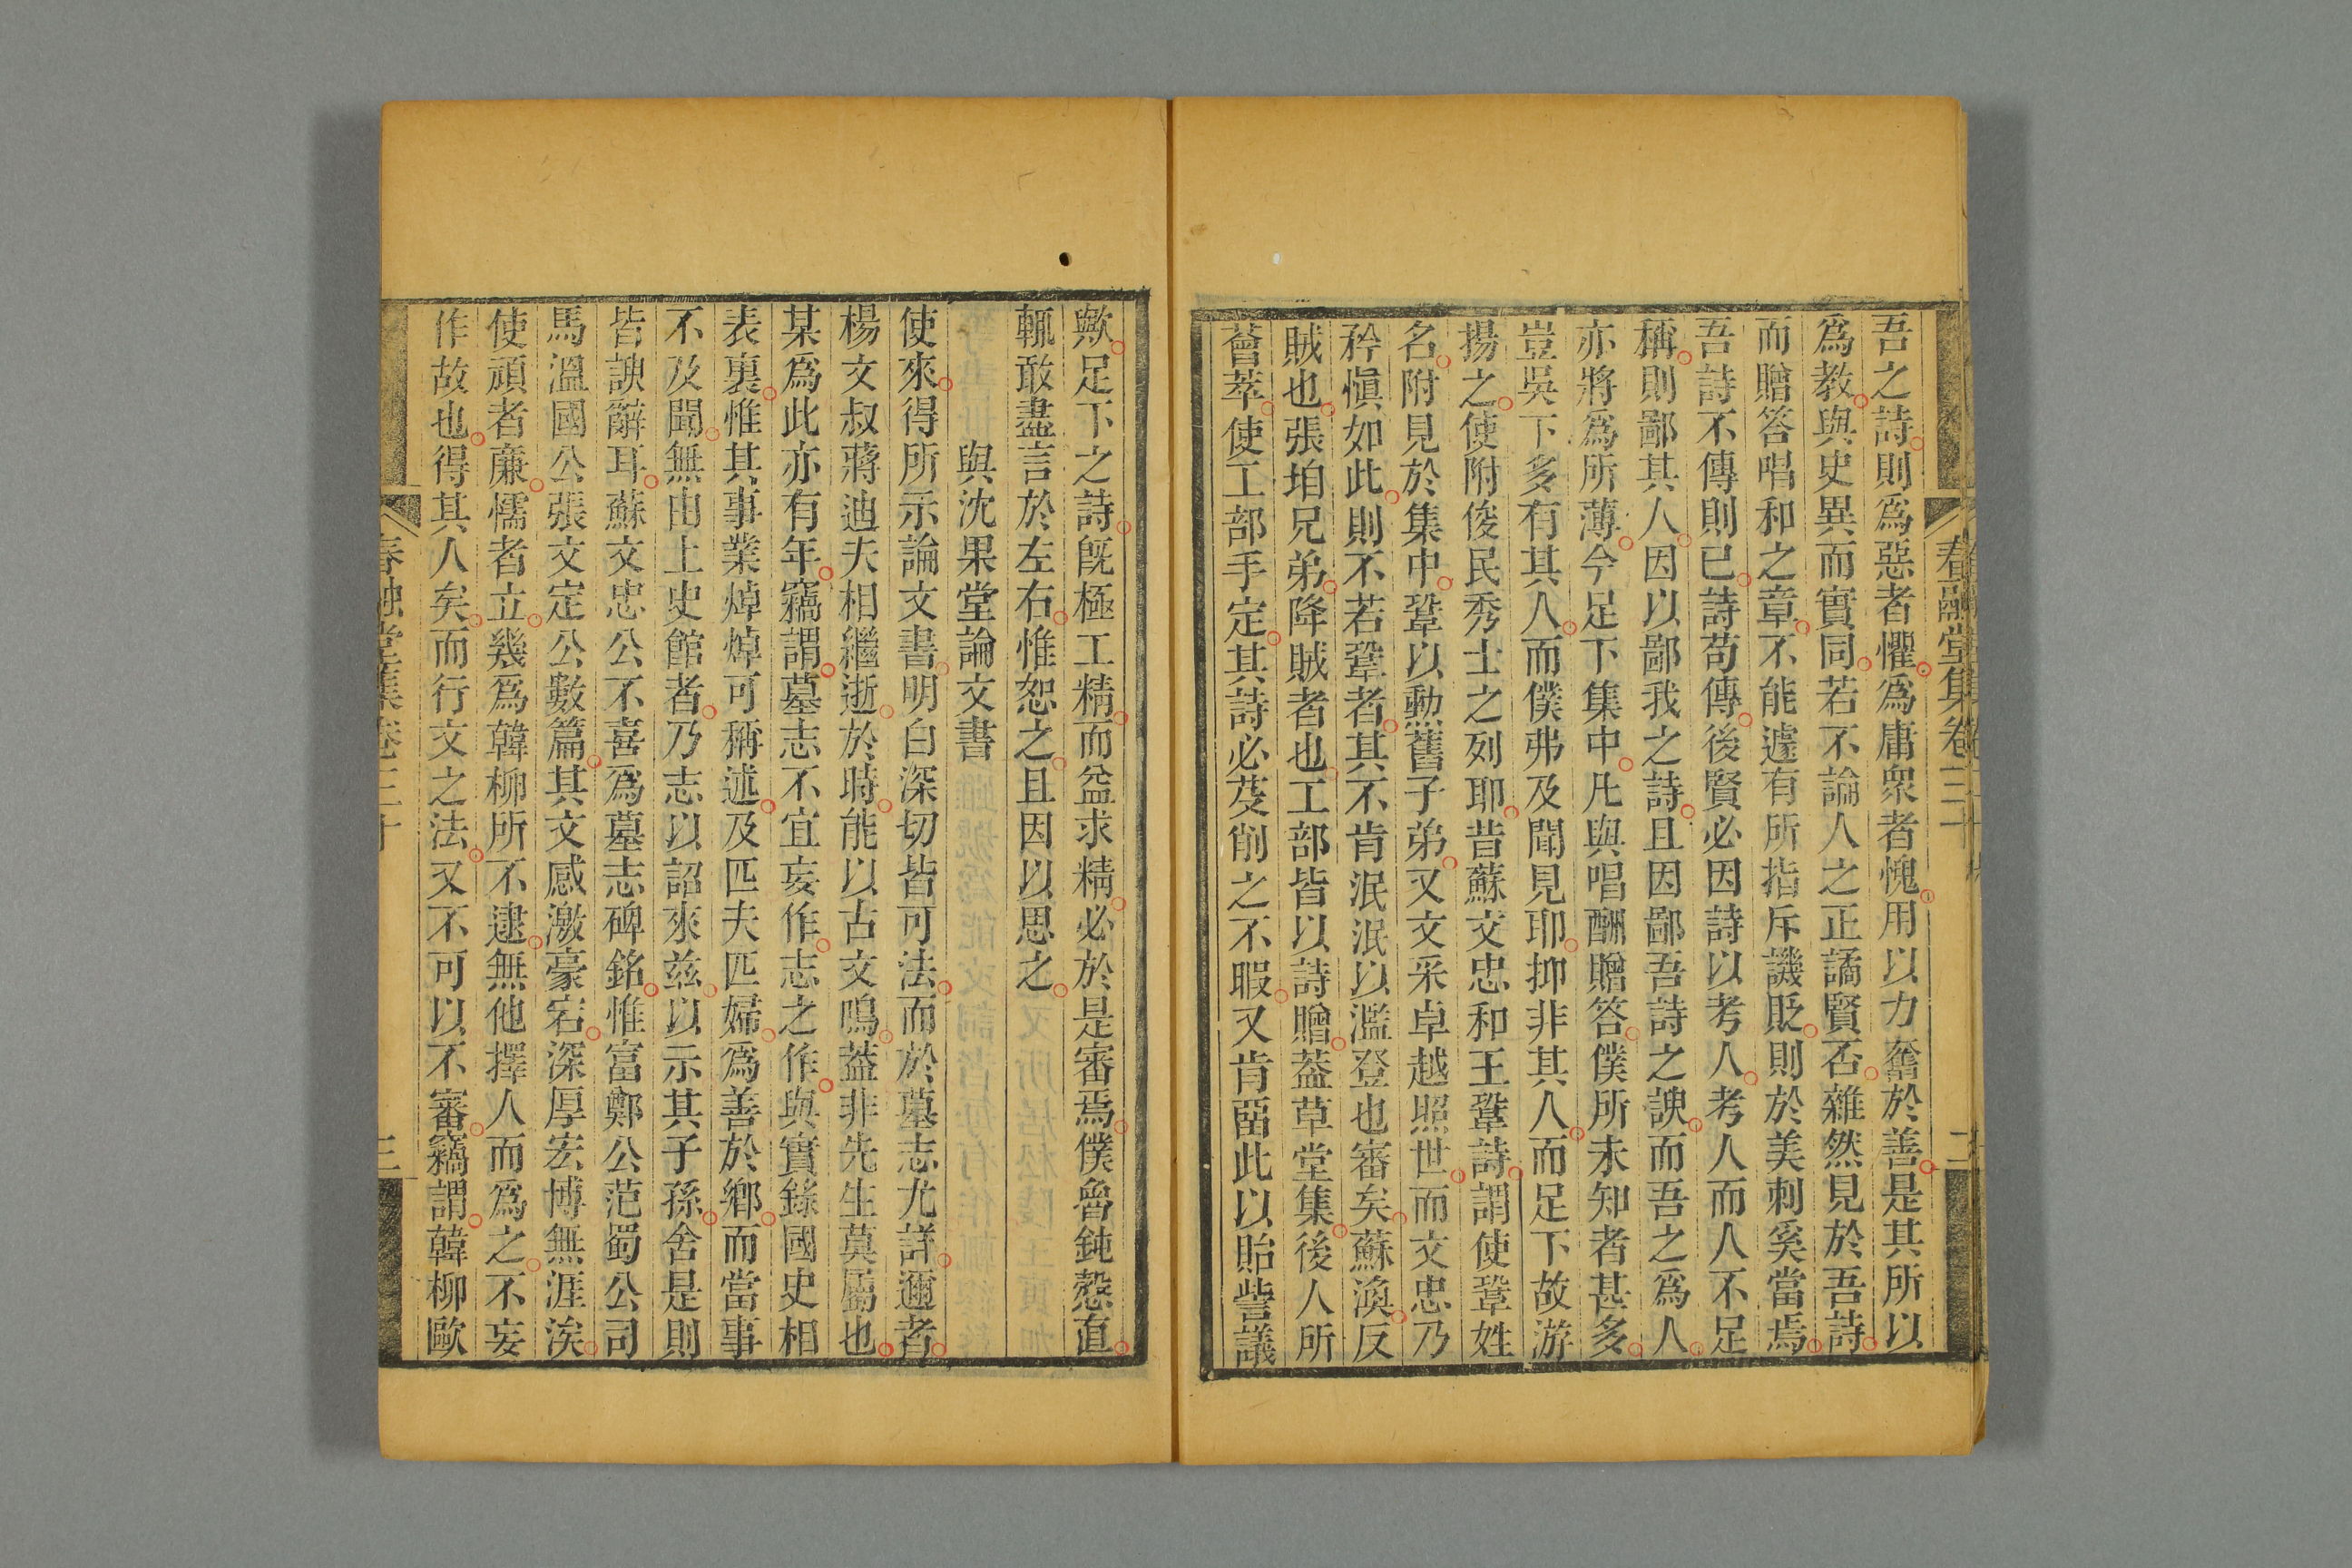 春融堂集卷三十
二
吾之詩則爲惡者懼爲庸衆者愧用以力奮於善是其所以
爲教與史異而實同若不論人之正譎賢否雜然見於吾詩
而贈答唱和之章不能遽有所指斥譏貶則於美刺奚當焉
吾詩不傳則已詩苟傳後賢必因詩以考人考人而人不足
稱則鄙其人因以鄙我之詩且因鄙吾詩之諛而吾之爲人
亦將爲所薄今足下集中凡與唱酬贈答僕所未知者甚多
豈吳下多有其人而僕弗及聞見耶抑非其人而足下故游
揚之使附俊民秀士之列耶昔蘇文忠和王鞏詩謂使鞏姓
名附見於集中鞏以勳舊子弟又文采卓越照世而文忠乃
矜愼如此則不若鞏者其不肯泯泯以濫登也審矣蘇渙反
賊也張垍兄弟降賊者也工部皆以詩贈葢草堂集後人所
薈萃使工部手定其詩必芟削之不暇又肯畱此以貽訾議
歟足下之詩旣極工精而益求精必於是審焉僕魯鈍慤直
輒敢盡言於左右惟恕之且因以思之
與沈果堂論文書
使來得所示論文書明白深切皆可法而於墓志尤詳邇者
楊文叔蔣迪夫相繼逝於時能以古文鳴葢非先生莫屬也
某爲此亦有年竊謂墓志不宜妄作志之作與實錄國史相
表裏惟其事業焯焯可稱述及匹夫匹婦爲善於鄉而當事
不及聞無由上史館者乃志以詔來兹以示其子孫舍是則
皆諛辭耳蘇文忠公不喜爲墓志碑銘惟富鄭公范蜀公司
馬溫國公張文定公數篇其文感激豪宕深厚宏博無涯涘
使頑者廉懦者立幾爲韓柳所不逮無他擇人而爲之不妄
作故也得其人矣而行文之法又不可以不審竊謂韓柳歐
春融堂集卷三十
三